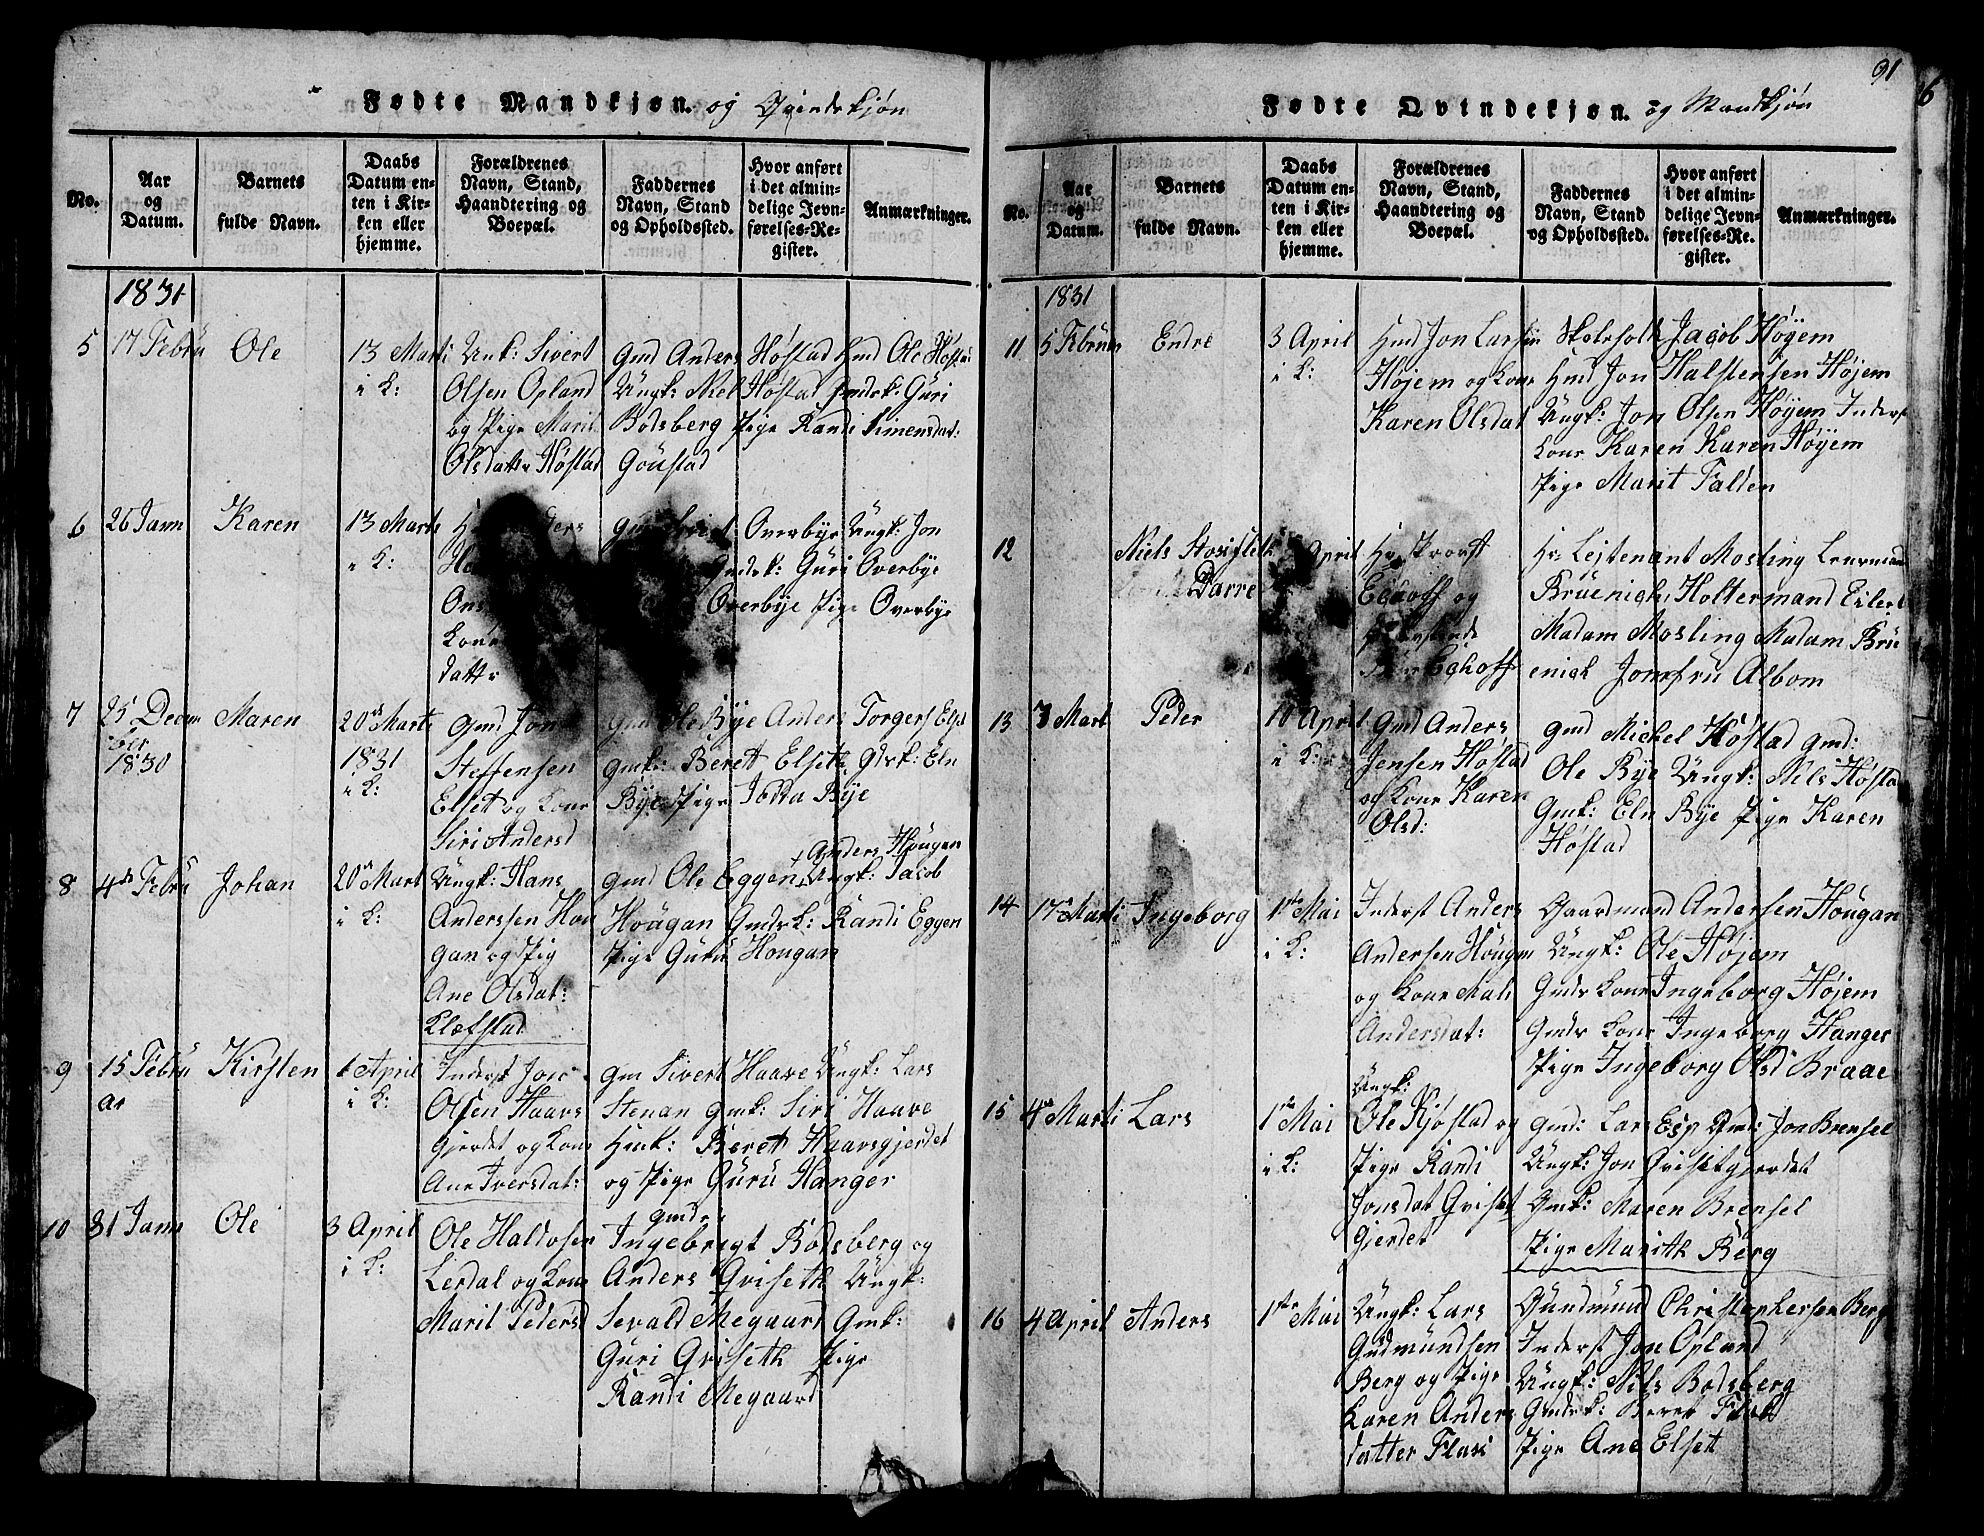 Fødte Mandkjøn. og Qvindekjøn
No.
Aar og Datum.
Barnets fulde Navn.
Daabs Datum enten i Kirken eller hjemme.
Forældrenes Navn, Stand, Haandtering og Boepæl.
Faddernes Navn, Stand og Opholdssted.
Hvor anført i det almindelige Jevnførelses-Register.
Anmærkninger.
1831
5 17 Febru Ole 13 Marti i K:
Ungk: Sivert
Olsen Opland
og Pige Marit
Olsdatter Høstad
Gmd Anders Høstad Hmd Ole Høstad
Ungk: Niel Høstad Gmdsk: Guri
Bodsberg Pige Randi Simensdat:
Goustad
6 26 Janu Karen 13 Marti i K:
Kone
datter
Overbye Ungk: Jon
Gmdsk: Guri Overbye
Overbye Pige Overbye
7 25 Decem
ber
1830
Maren 20de Marti
1831
i K:
Gmd Jon
Steffensen
Elset og Kone
Siri Andersd
Gmd Ole Bye Anders Torgers Elset
Gmk: Beret Elseth Gdsk: Eln
Bye Pige Jodta Bye
8 4de Febru Johan 20de Mart i K:
Ungk: Hans
Anderssen Hou
gan og Pig
Ane Olsdat:
Klefstad
+ Anders Hougen
Gmd Ole Eggen + Ungk: Jacob
Hougan Gmdsk: Randi Eggen
Pige Guru Hougan
9 15 Febru
ar
Kirsten 1 April i K:
Inderst Jon
Olsen Haavs
gjerdet og Kone
Ane Iversdat:
Gm Sivert Haave Ungk: Lars
Stenan Gmk: Siri Haave
Hmk: Beret Haavsgjerdet
og Pige Guru Hanger
10 31 Janu Ole 3 April i K:
Ole Haldosen
Lerdal og Kone
Marit Pedersd
Gmdr:
Ingebregt Bodsberg og
Anders Qviseth Ungk:
Sevald Megaard Gmk:
Guri Qviseth Pige
Randi Megaard
91
6
Fødte Qvindekjøn. og Mandkjøn
No.
Aar og Datum.
Barnets fulde Navn.
Daabs Datum enten i Kirken eller hjemme.
Forældrenes Navn, Stand, Haandtering og Boepæl.
Faddernes Navn, Stand og Opholdssted.
Hvor anført i det almindelige Jevnførelses-Register.
Anmærkninger.
1831
11 5 Februar Endre 3 April i K:
Hmd Jon Larsen
Højem og Kone
Karen Olsdat
Skoleholder Jacob Høyem
Hmd Jon Halstensen Højem
Ungk: Jon Olsen Høyem Inderst
Kone Karen Karen Høyem
Pige Marit Falden
12 Niels Stockfleth
Darre
April
Hr Provst
og
Eghoff
Hr Lejtenant Mosling Lensmand
Brüenich, Holtermand Eilert
Madam Mosling Madam Brü
enich Jomfru Albom
13 7 Mart Peder 10 April i K:
Gmd Anders
Jensen Høstad
og Kone Karen
Olsd:
Gmd Michel Høstad Gmd:
Ole Bye Ungk: Nils Høstad
Gmk: Eln Bye Pige Karen
Høstad
14 17de Marti Ingeborg 1ste Mai i K:
Inderst Anders
Andersen Hougen
og Kone Mali
Andersdat:
Gaardmand Andersen Hougan
Ungk: Ole Højem
Gmds Kone Ingeborg Højem
Gmds Kone Ingeborg Hanger
Pige Ingeborg Olsd Braae
15 4de Marti Lars 1ste Mai i K:
Ungk:
Ole Kjøstad og
Pige Randi
Jonsdat Qviset
Gjerdet
Gmd: Lars Esp Gmd: Jon Brensel
Ungk: Jon Qvisetgjerdet
Gmk: Maren Brensel
Pige Marith Berg
16 4 April Anders 1ste Mai
Ungk: Lars
Gudmundsen
Berg og Pige
Karen Anders
datter Flaxi
Gundmund Christophersen Berg
Inderst Jon Opland
Ungk: Nils Bodsberg
Gmdsk: Beret
Pige Ane Elset